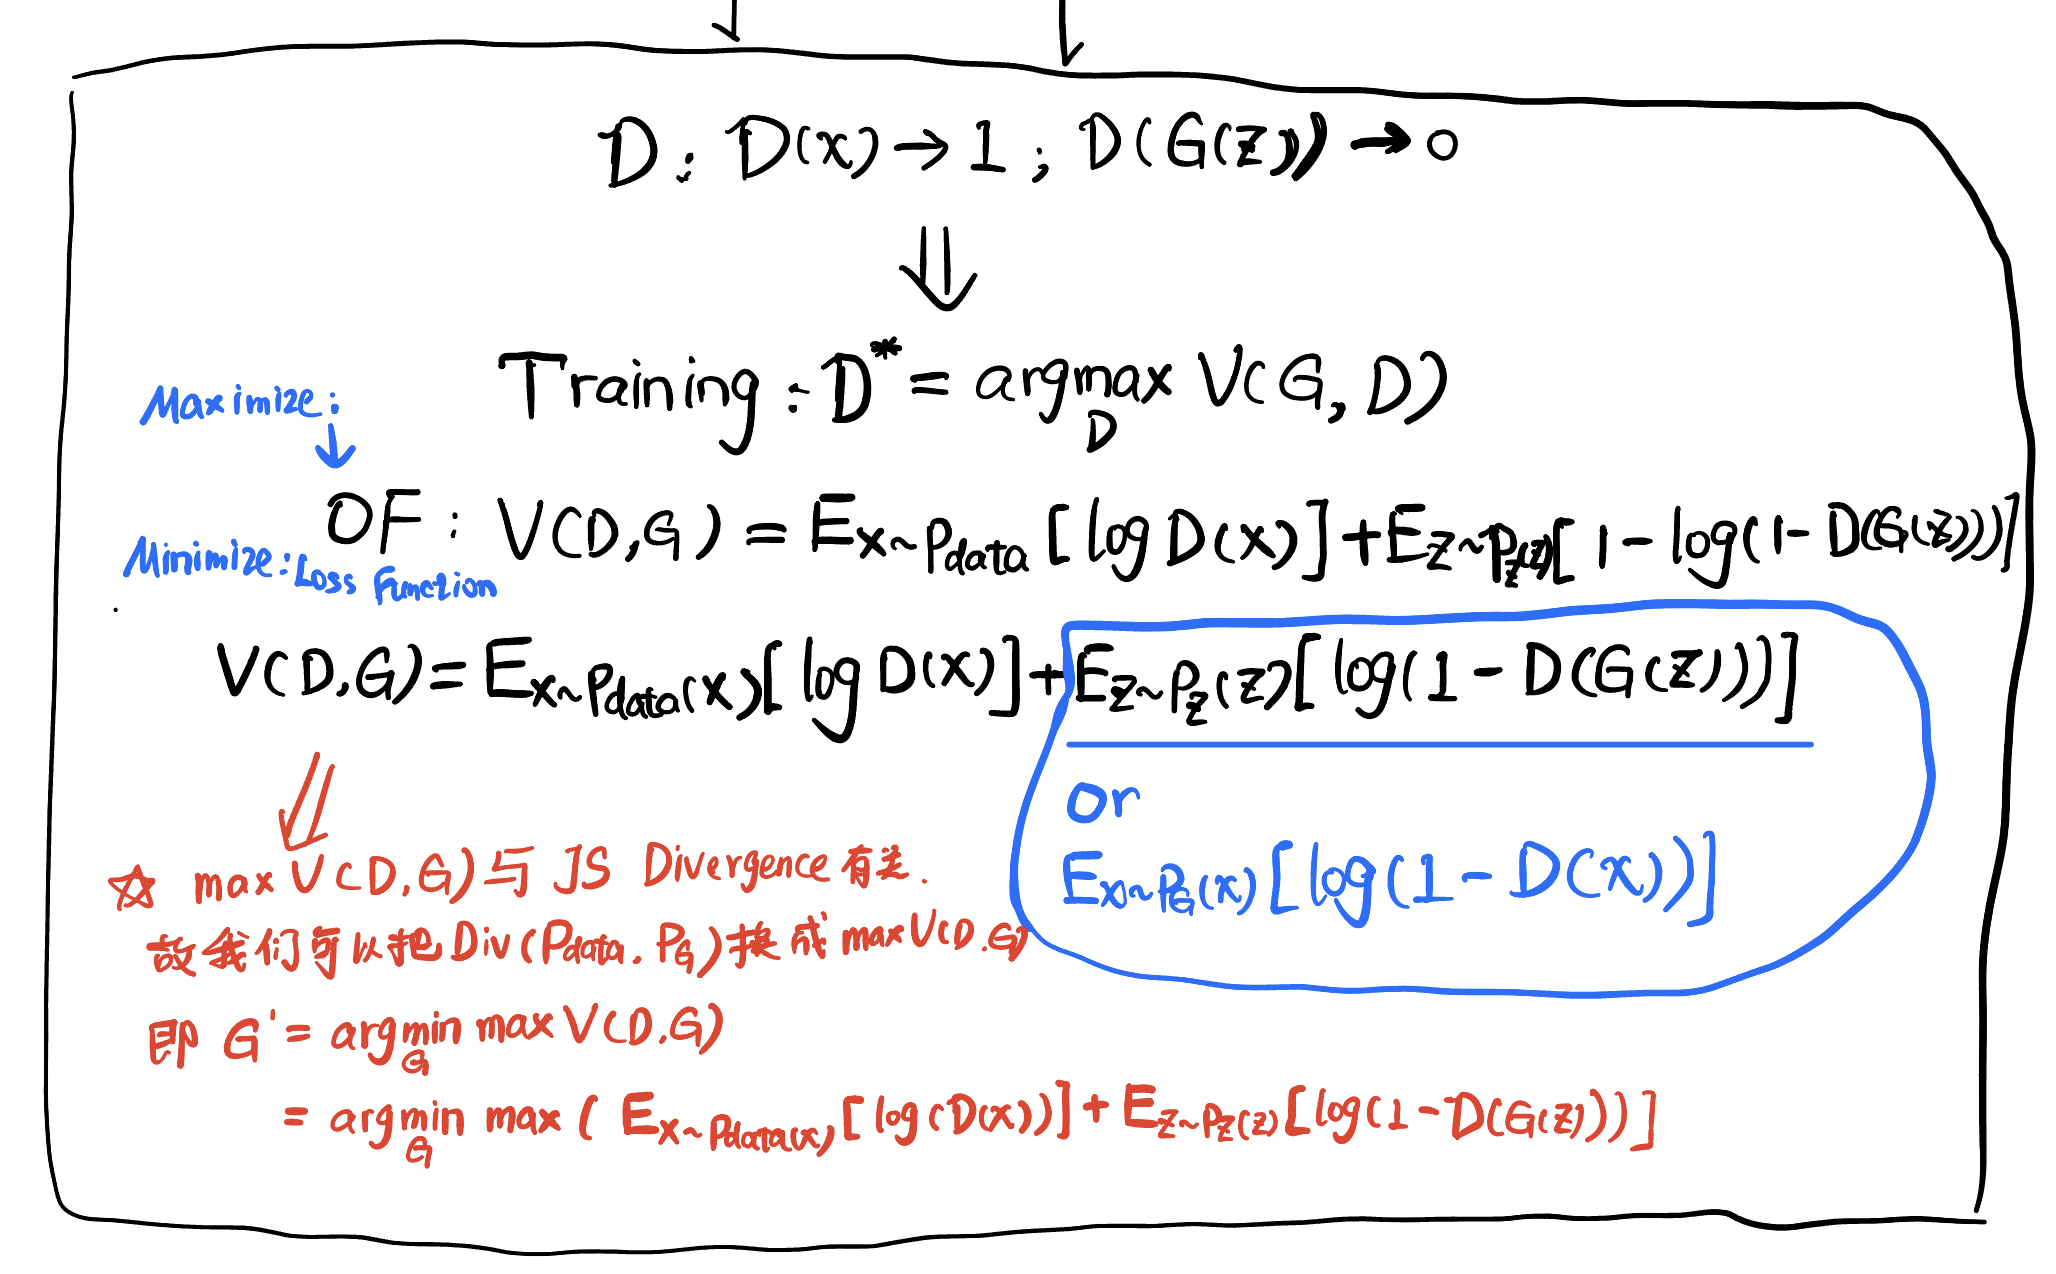 D: D(x)→1; D(G(z))→0
⇓
Training: D* = argmax_D V(G, D)
Maximize:
↓
OF: V(D,G) = E_{x~Pdata}[log D(x)] + E_{z~P_z(z)}[1 - log(1- D(G(z)))]
Minimize: Loss Function
V(D,G) = E_{x~Pdata(x)}[log D(x)] + E_{z~P_z(z)}[log(1 - D(G(z)))]
or
E_{x~P_G(x)}[log(1 - D(x))]
☆ max V(D,G)与 JS Divergence 有关.
故我们可以把 Div(Pdata, P_G)换成 max V(D.G)
即 G' = argmin_G max V(D.G)
= argmin_G max ( E_{x~Pdata(x)}[log(D(x))] + E_{z~P_z(z)}[log(1-D(G(z)))]